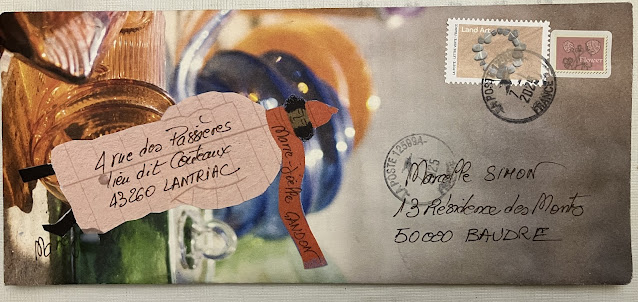 4 rue des Passères
lieu dit Couteaux
43260 LANTRIAC
Marie-Joëlle GANDON
Land Art
Flower
LA POSTE
2025
FRANCE
LA POSTE 125894
Marcelle SIMON
13 Résidence des Monts
50000 BAUDRE